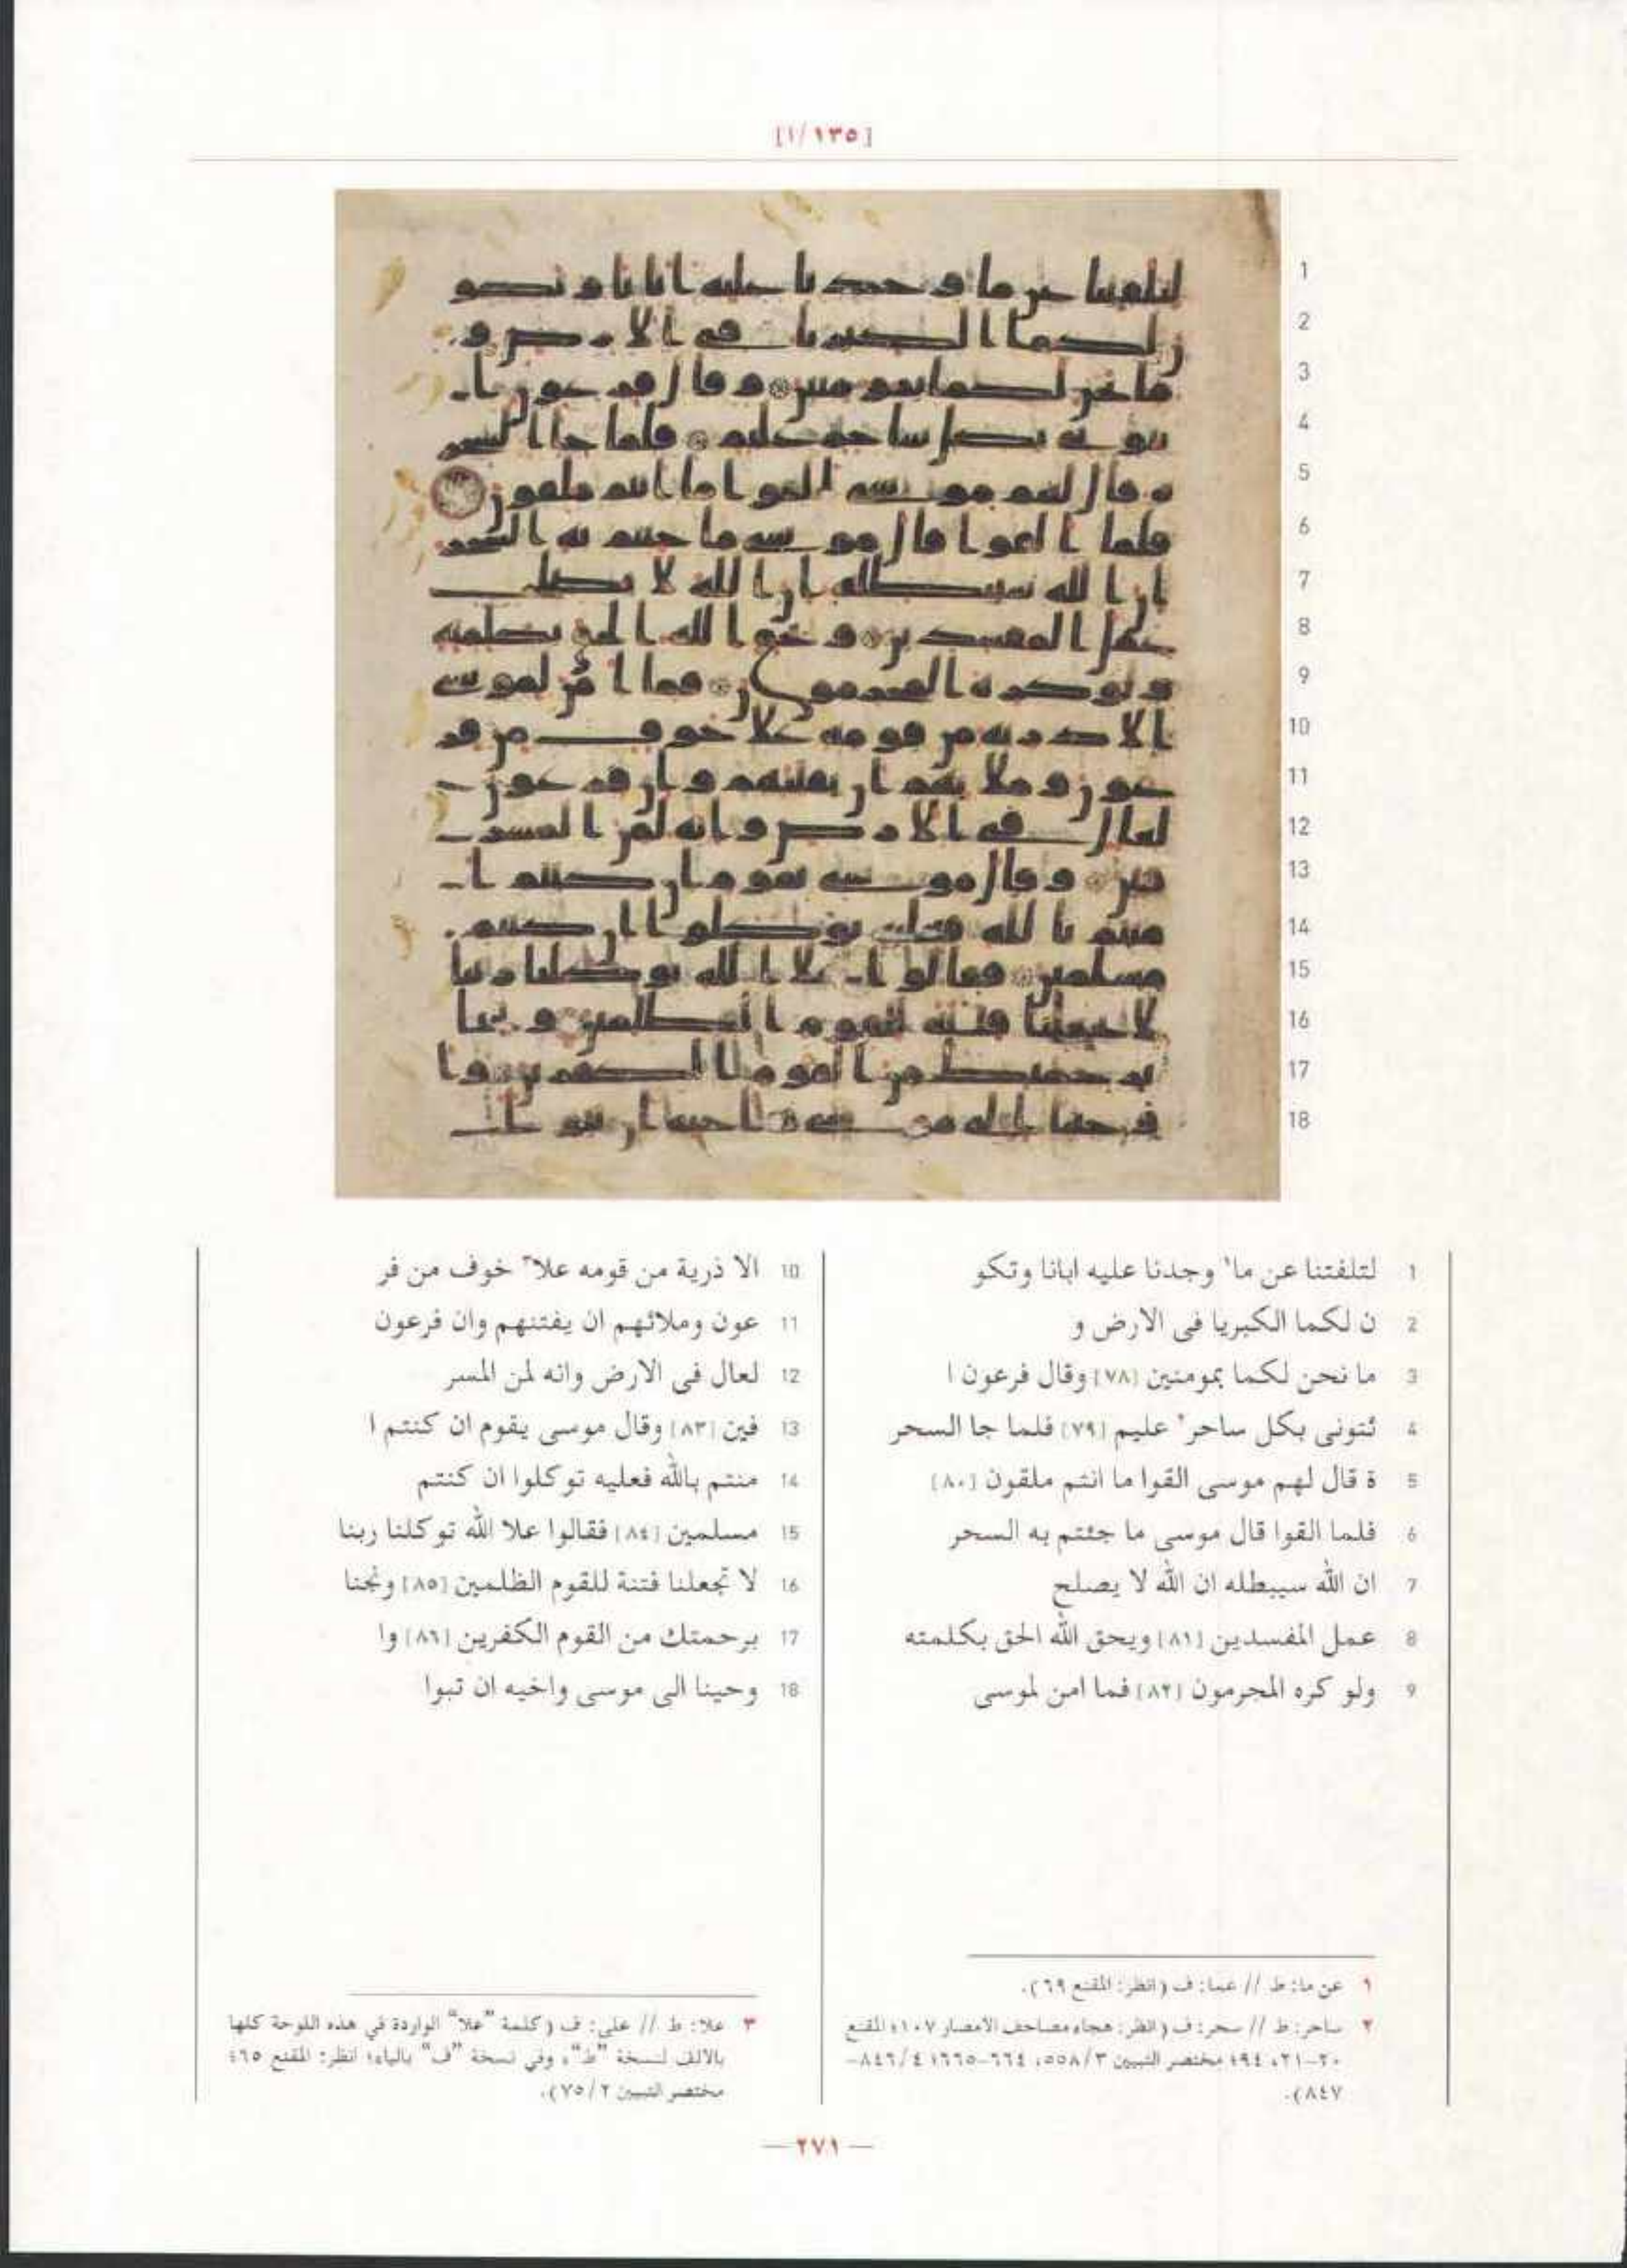 [١/١٣٥]
1
2
3
4
5
6
7
8
9
10
11
12
13
14
15
16
17
18
1 لتلفتنا عن ما١ وجدنا عليه ابانا وتكو
2 ن لكما الكبريا فى الارض و
3 ما نحن لكما بمومنين [٧٨] وقال فرعون ا
4 ئتونى بكل ساحر٢ عليم [٧٩] فلما جا السحر
5 ة قال لهم موسى القوا ما انتم ملقون [٨٠]
6 فلما القوا قال موسى ما جئتم به السحر
7 ان الله سيبطله ان الله لا يصلح
8 عمل المفسدين [٨١] ويحق الله الحق بكلمته
9 ولو كره المجرمون [٨٢] فما امن لموسى
10 الا ذرية من قومه علا٣ خوف من فر
11 عون وملائهم ان يفتنهم وان فرعون
12 لعال فى الارض وانه لمن المسر
13 فين [٨٣] وقال موسى يقوم ان كنتم ا
14 منتم بالله فعليه توكلوا ان كنتم
15 مسلمين [٨٤] فقالوا علا الله توكلنا ربنا
16 لا تجعلنا فتنة للقوم الظلمين [٨٥] ونجنا
17 برحمتك من القوم الكفرين [٨٦] وا
18 وحينا الى موسى واخيه ان تبوا
١ عن ما: ط // عما: ف (انظر: المقنع ٦٩).
٢ ساحر: ط // سحر: ف (انظر: هجاء مصاحف الامصار ١٠٧؛ المقنع
٢٠-٢١، ٩٤؛ مختصر التبيين ٥٥٨/٣، ٦٦٤-٦٦٥؛ ٨٤٦/٤-
٨٤٧).
٣ علا: ط // على: ف (كلمة "علا" الواردة في هذه اللوحة كلها
بالالف لنسخة "ط"، وفي نسخة "ف" بالياء؛ انظر: المقنع ٦٥؛
مختصر التبيين ٧٥/٢).
— ٢٧١ —